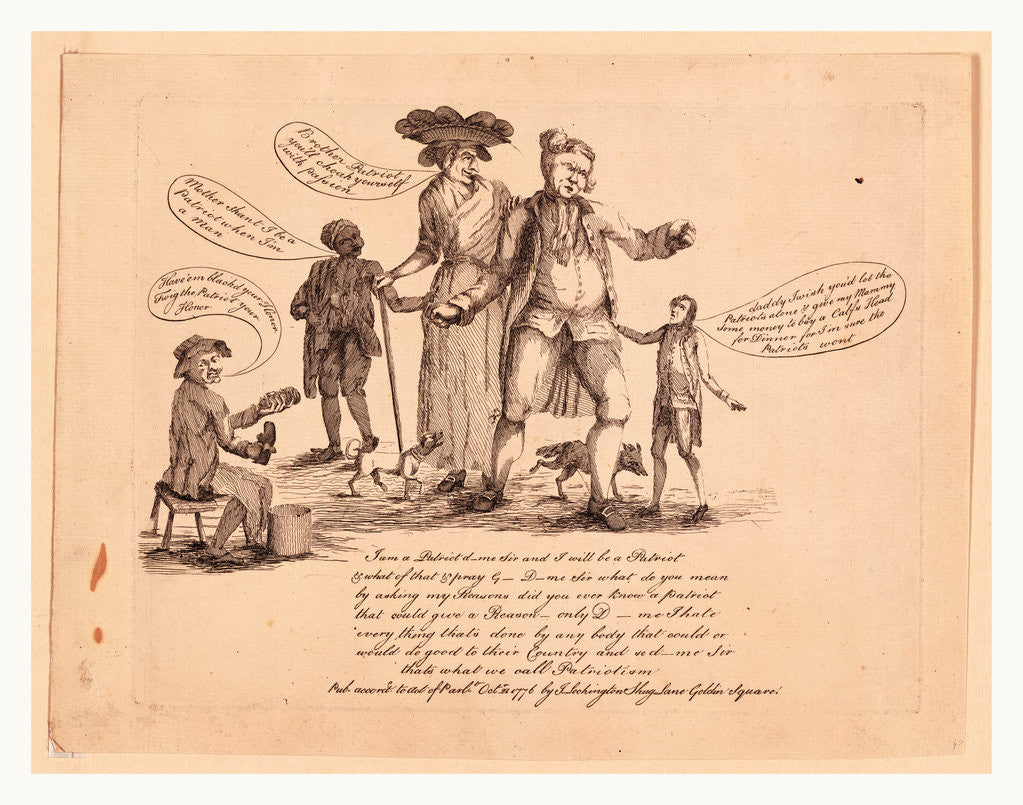 Brother Patriot
you'll choak yourself
with passion
Mother shant I be a
Patriot when I'm
a Man
Have 'em blackd your Honor
Twig the Patriot your
Honor
daddy I wish you'd let the
Patriots alone & give my Mammy
Some money to buy a Calfs Head
for Dinner for I'm sure the
Patriots wont
I am a Patriot d—me Sir and I will be a Patriot
& what of that & pray G— D—me Sir what do you mean
by asking my Reasons did you ever know a patriot
that could give a Reason— only D—me I hate
every thing thats done by any body that could or
would do good to their Country and so d—me Sir
thats what we call Patriotism
Pub. accord.g to Act of Parl.t Oct. 22 1776 by J. Lockington Shug Lane Golden Square.